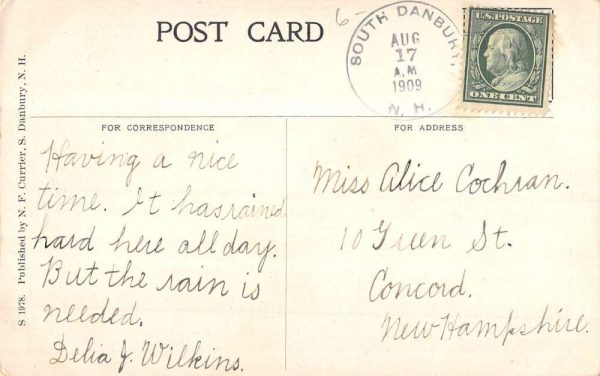 POST CARD
6-
SOUTH DANBURY,
AUG
17
A.M
1909
N. H.
U.S. POSTAGE
ONE CENT
FOR CORRESPONDENCE
FOR ADDRESS
S 1978. Published by N. F. Currier, S. Danbury, N. H.
Having a nice
time. It has rained
hard here all day.
But the rain is
needed.
Delia J. Wilkins.
Miss Alice Cochran.
10 Green St.
Concord.
New Hampshire.